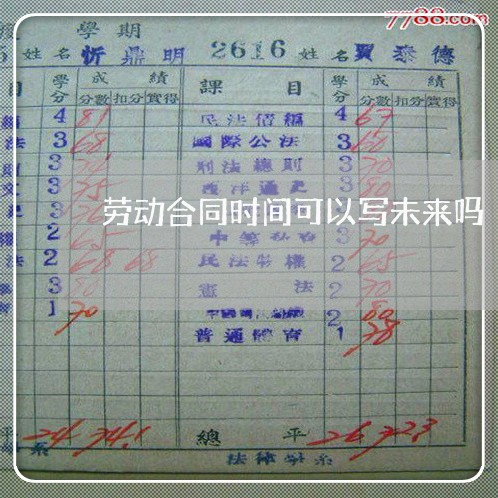 7788.com
學期
姓名忻鼎明 2616 姓名賈泰德
學分 成績 課目 學分 成績
分數 扣分 實得 分數 扣分 實得
4 81 民法債編 4 67
法 3 68 國際公法 3 60
3 刑法總則 3 70
3 75 西洋通史 3 80
劳动合同时间可以写未来吗
2 65 3 70
法 2 68 68 民法物權 2 65
3 80 憲法 2 70
1 70 2 80
普通體育 1 78
平 24 74.1 總平 26 72.3
系 法律學系